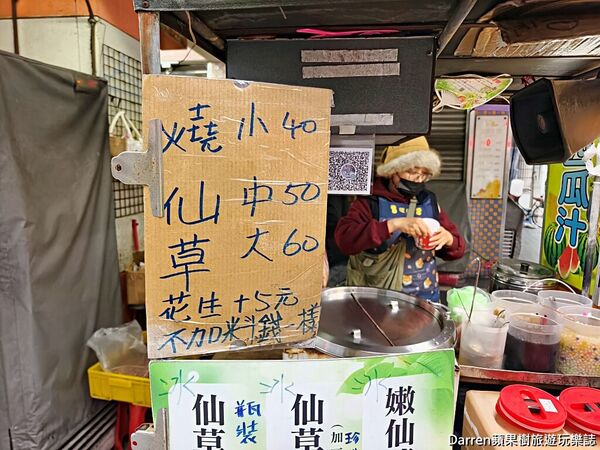 燒 小 40
仙 中 50
草 大 60
花生 +5元
不加料錢一樣
冰
仙草
瓶裝
冰
仙草
(加
珍
冰
嫩仙
瓜汁
Darren蘋果樹旅遊玩樂誌